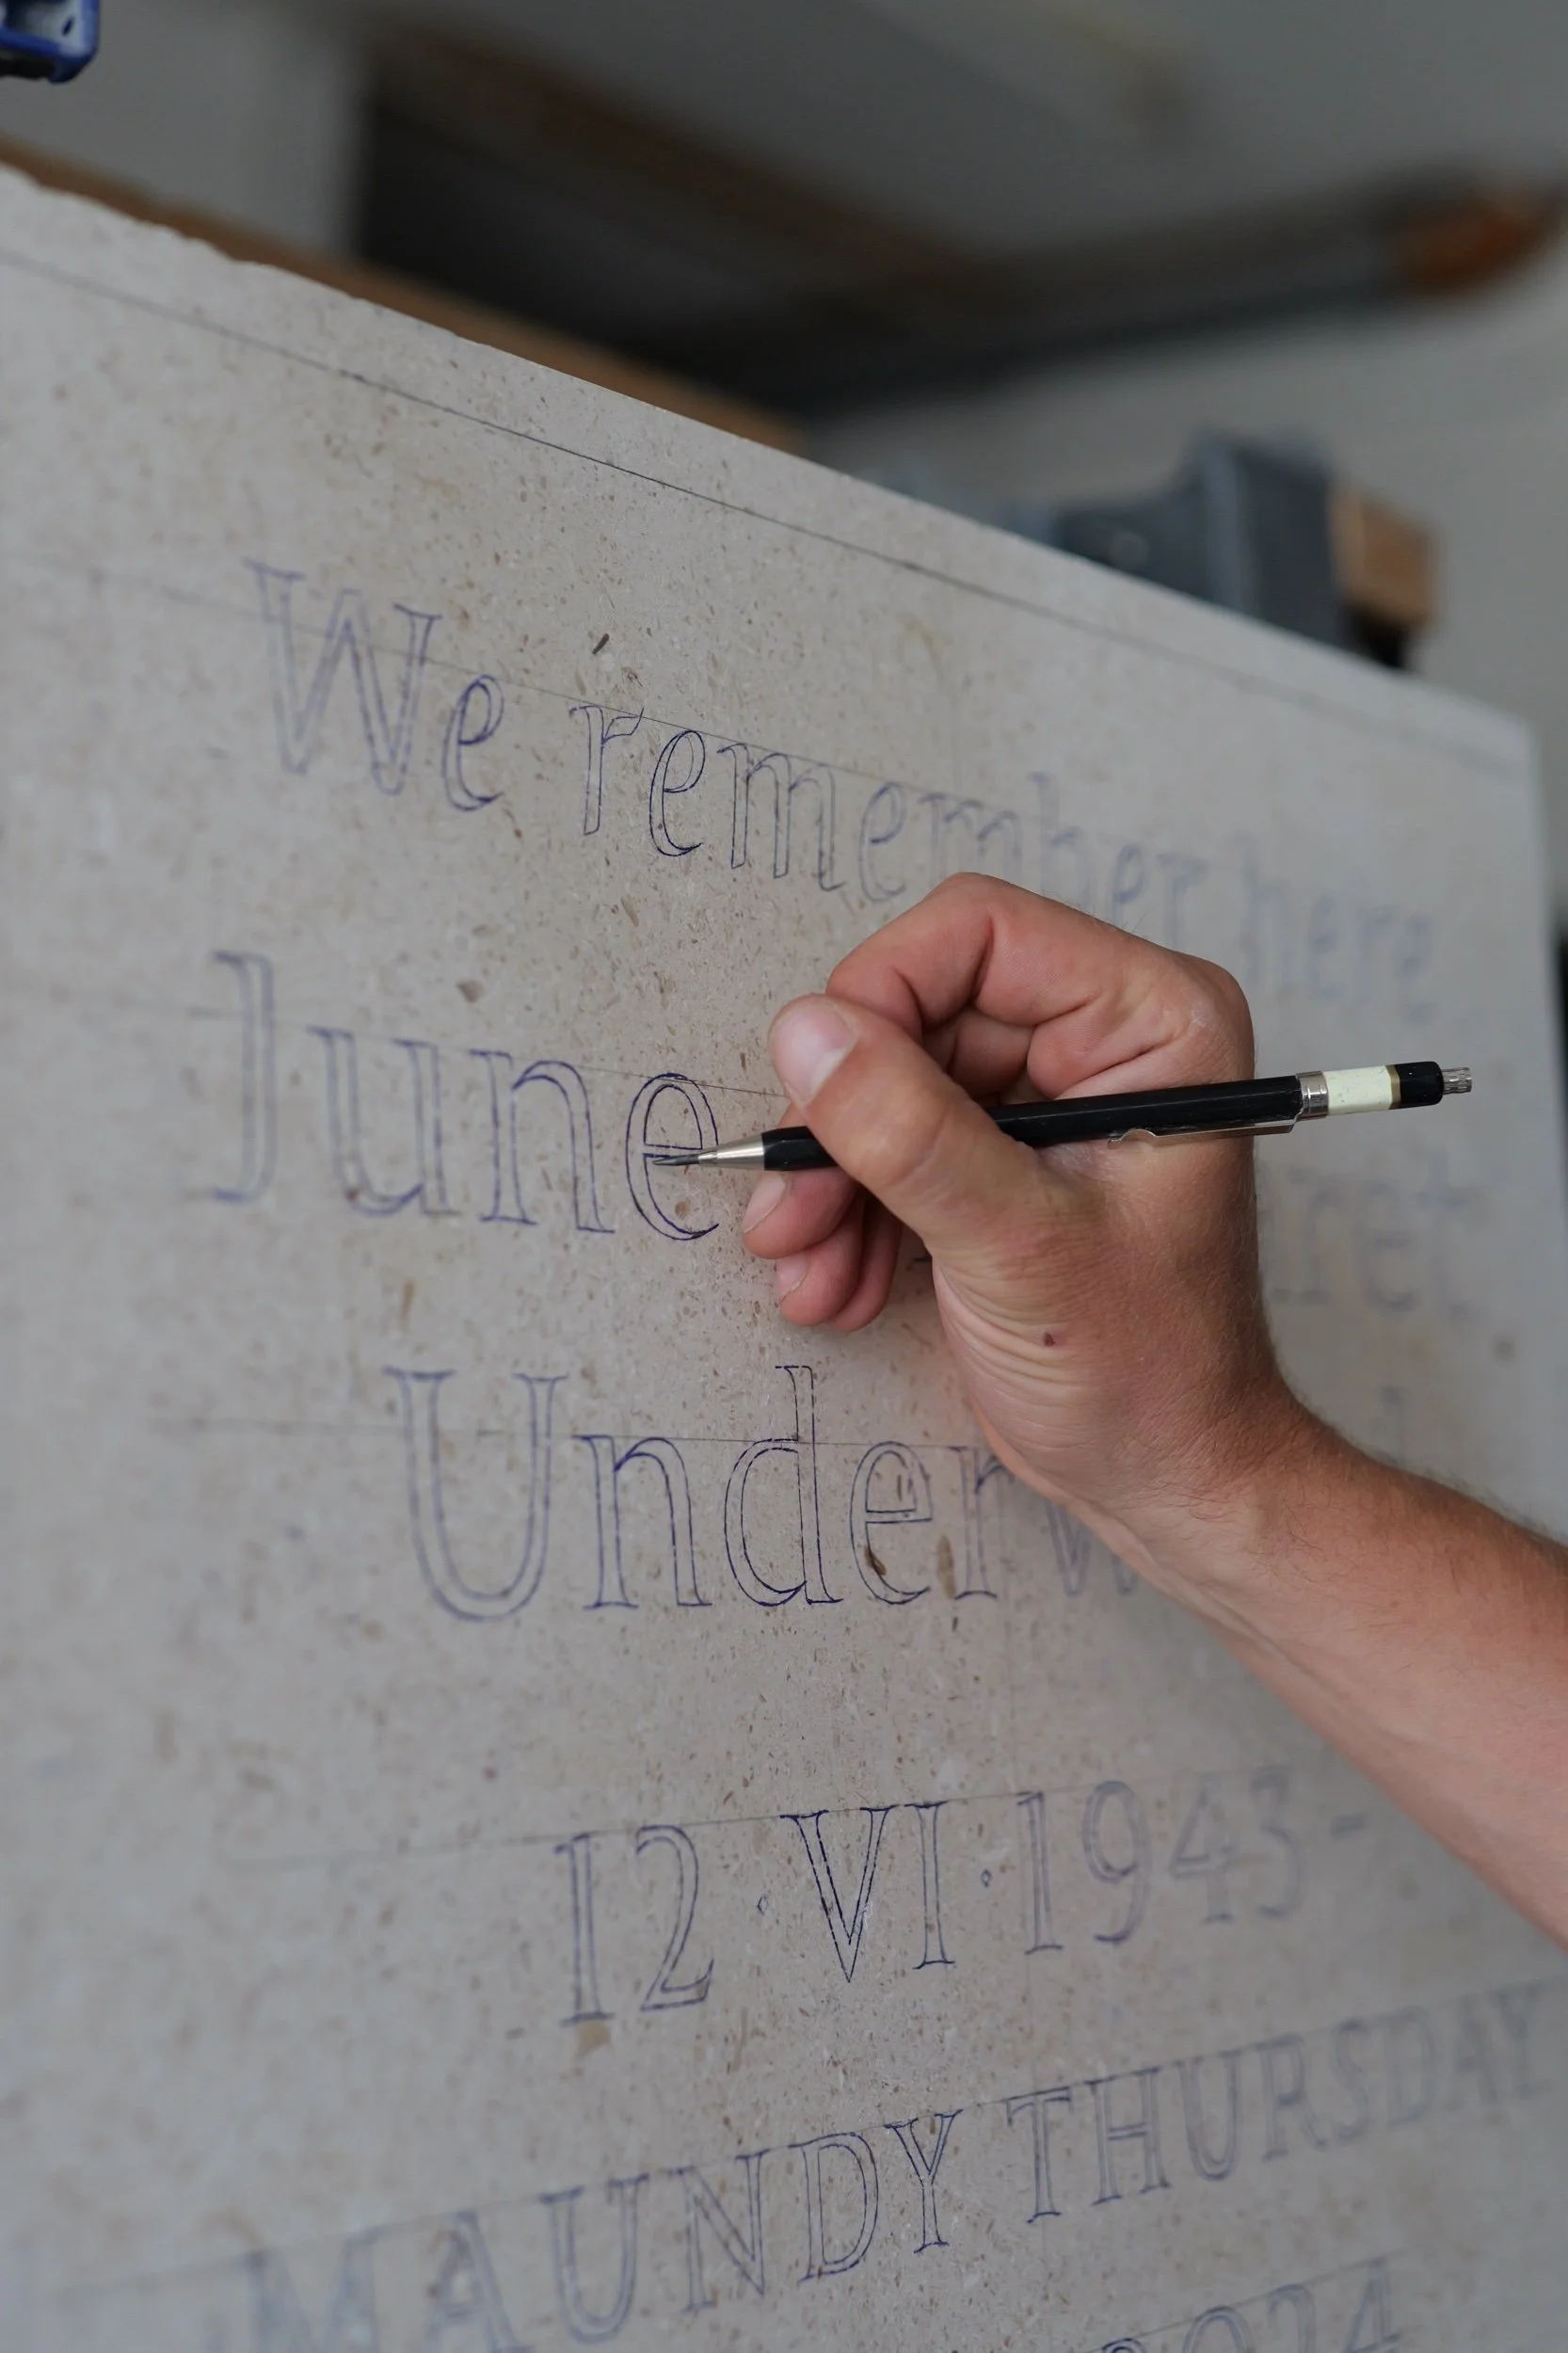 We remember here
June
Underw
12 · VI · 1943 -
MAUNDY THURSDAY
2024